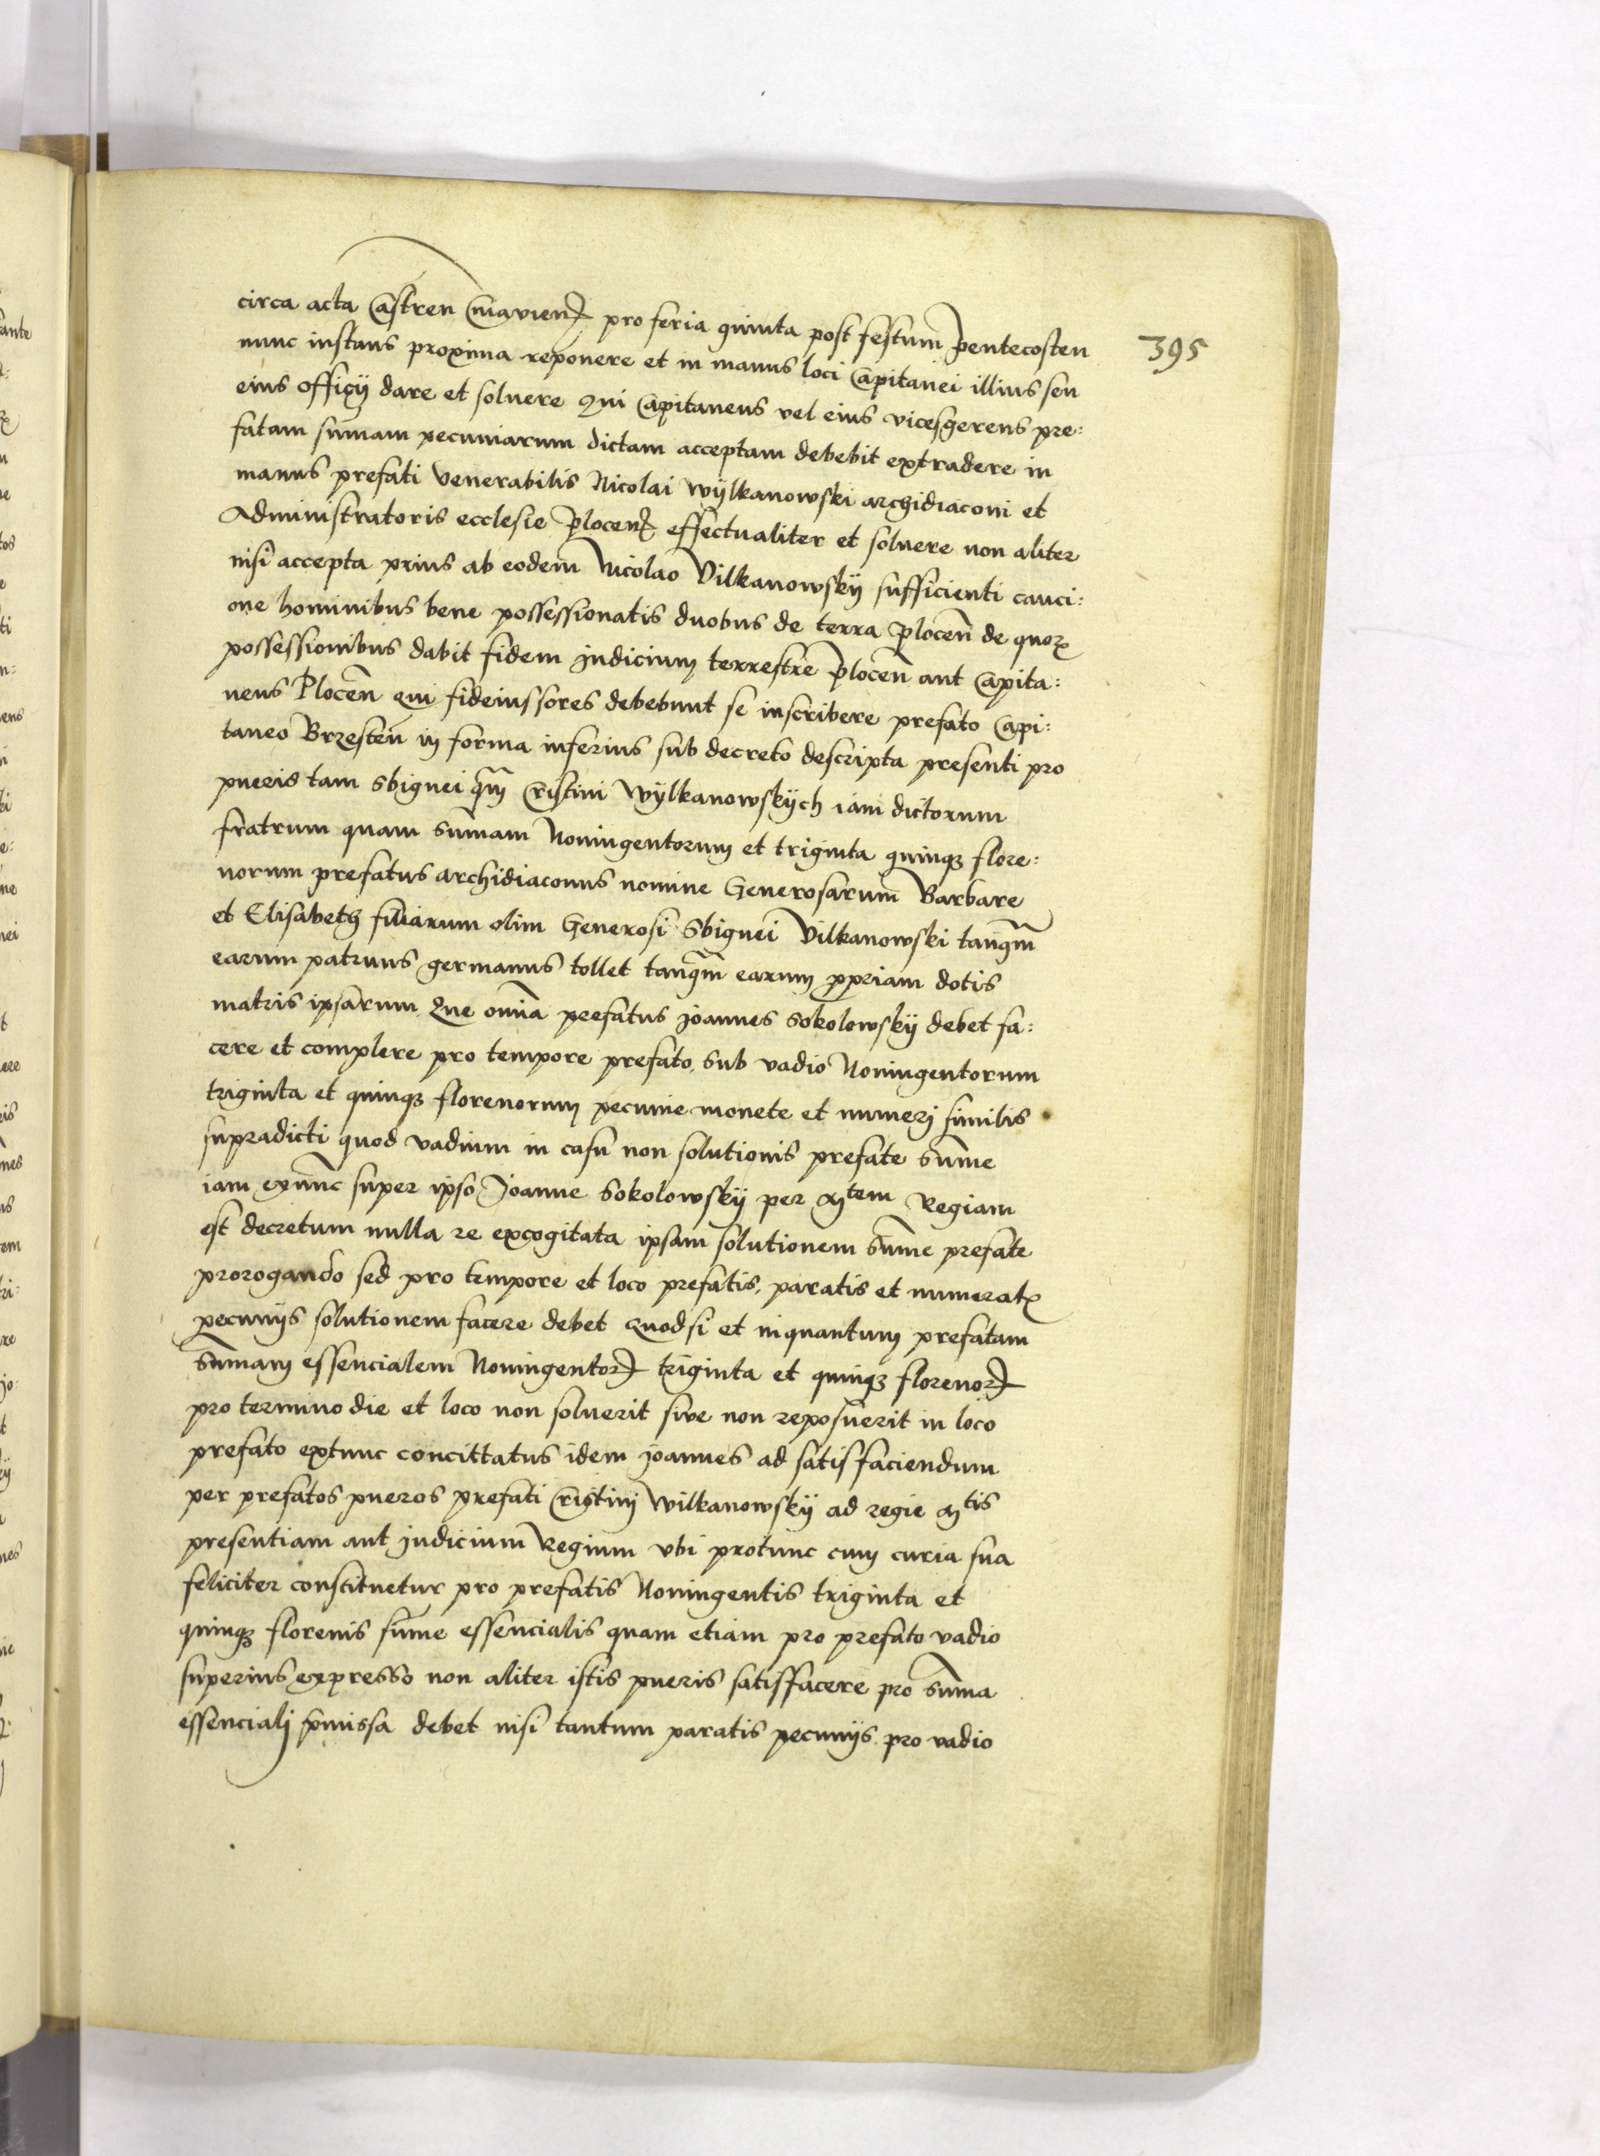 circa acta Castren Cuiavienſ pro feria quinta post festum Pentecosten
395
nunc instans proxima reponere et in manus loci Capitanei illius seu
eius officij dare et soluere Qui Capitaneus vel eius vicesgerens pre:
fatam sum̄am pecuniarum dictam acceptam debebit extradere in
manus prefati venerabilis Nicolai Wylkanowski archidiaconi et
Administratoris ecclesie Plocenſ effectualiter et soluere non aliter
nisi accepta prius ab eodem Nicolao Vilkanowskÿ sufficienti cauci:
one hominibus bene possessionatis duobus de terra Plocen̄ de quoꝝ
possessionibus dabit fidem Judicium terrestre Plocen̄ aut Capita:
neus Plocen̄ qui fideiussores debebunt se inscribere prefato Capi:
taneo Brzesten̄ in forma inferius sub decreto descripta presenti pro
pueris tam Sbignei qm̄ Cristini Wÿlkanowskÿch iam dictorum
fratrum quam sum̄am Noningentorum et triginta quinqꝫ flore:
norum prefatus archidiaconus nomine Generosarum Barbare
et Elisabeth filiarum olim Generosi Sbignei Vilkanowski tanqm̄
earum patruus germanus tollet tanqm̄ earum ꝓpriam dotis
matris ipsarum Que omīa prefatus Joannes Sokolowskÿ debet fa:
cere et complere pro tempore prefato sub vadio Noningentorum
triginta et quinqꝫ florenorum pecunie monete et numerj similis
supradicti quod vadium in casu non solutionis prefate sum̄e
iam extunc super ipso Joanne Sokolowskÿ per Mtem Regiam
est decretum nulla re excogitata ipsam solutionem sum̄e prefate
prorogando sed pro tempore et loco prefatis, paratis et numeratꝭ
pecunijs solutionem facere debet Quodsi et inquantum prefatam
sum̄am essencialem Noningentoꝝ triginta et quinqꝫ florenoꝝ
pro termino die et loco non soluerit sive non reposuerit in loco
prefato extunc concittatus idem Joannes ad satisfaciendum
per prefatos pueros prefati Cristinj Wilkanowskÿ ad regie Mtis
presentiam aut Judicium Regium vbi protunc cum curia sua
feliciter constituetur pro prefatis Noningentis triginta et
quinqꝫ florenis sum̄e essencialis quam etiam pro prefato vadio
superius expresso non aliter istis pueris satisfacere pro sum̄a
essencialj p̄missa debet nisi tantum paratis pecunijs pro vadio